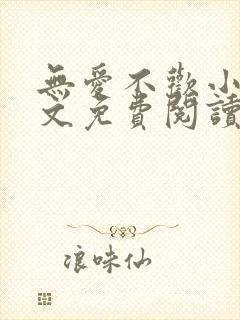 無愛不歡小
文免費閱讀
浪味仙